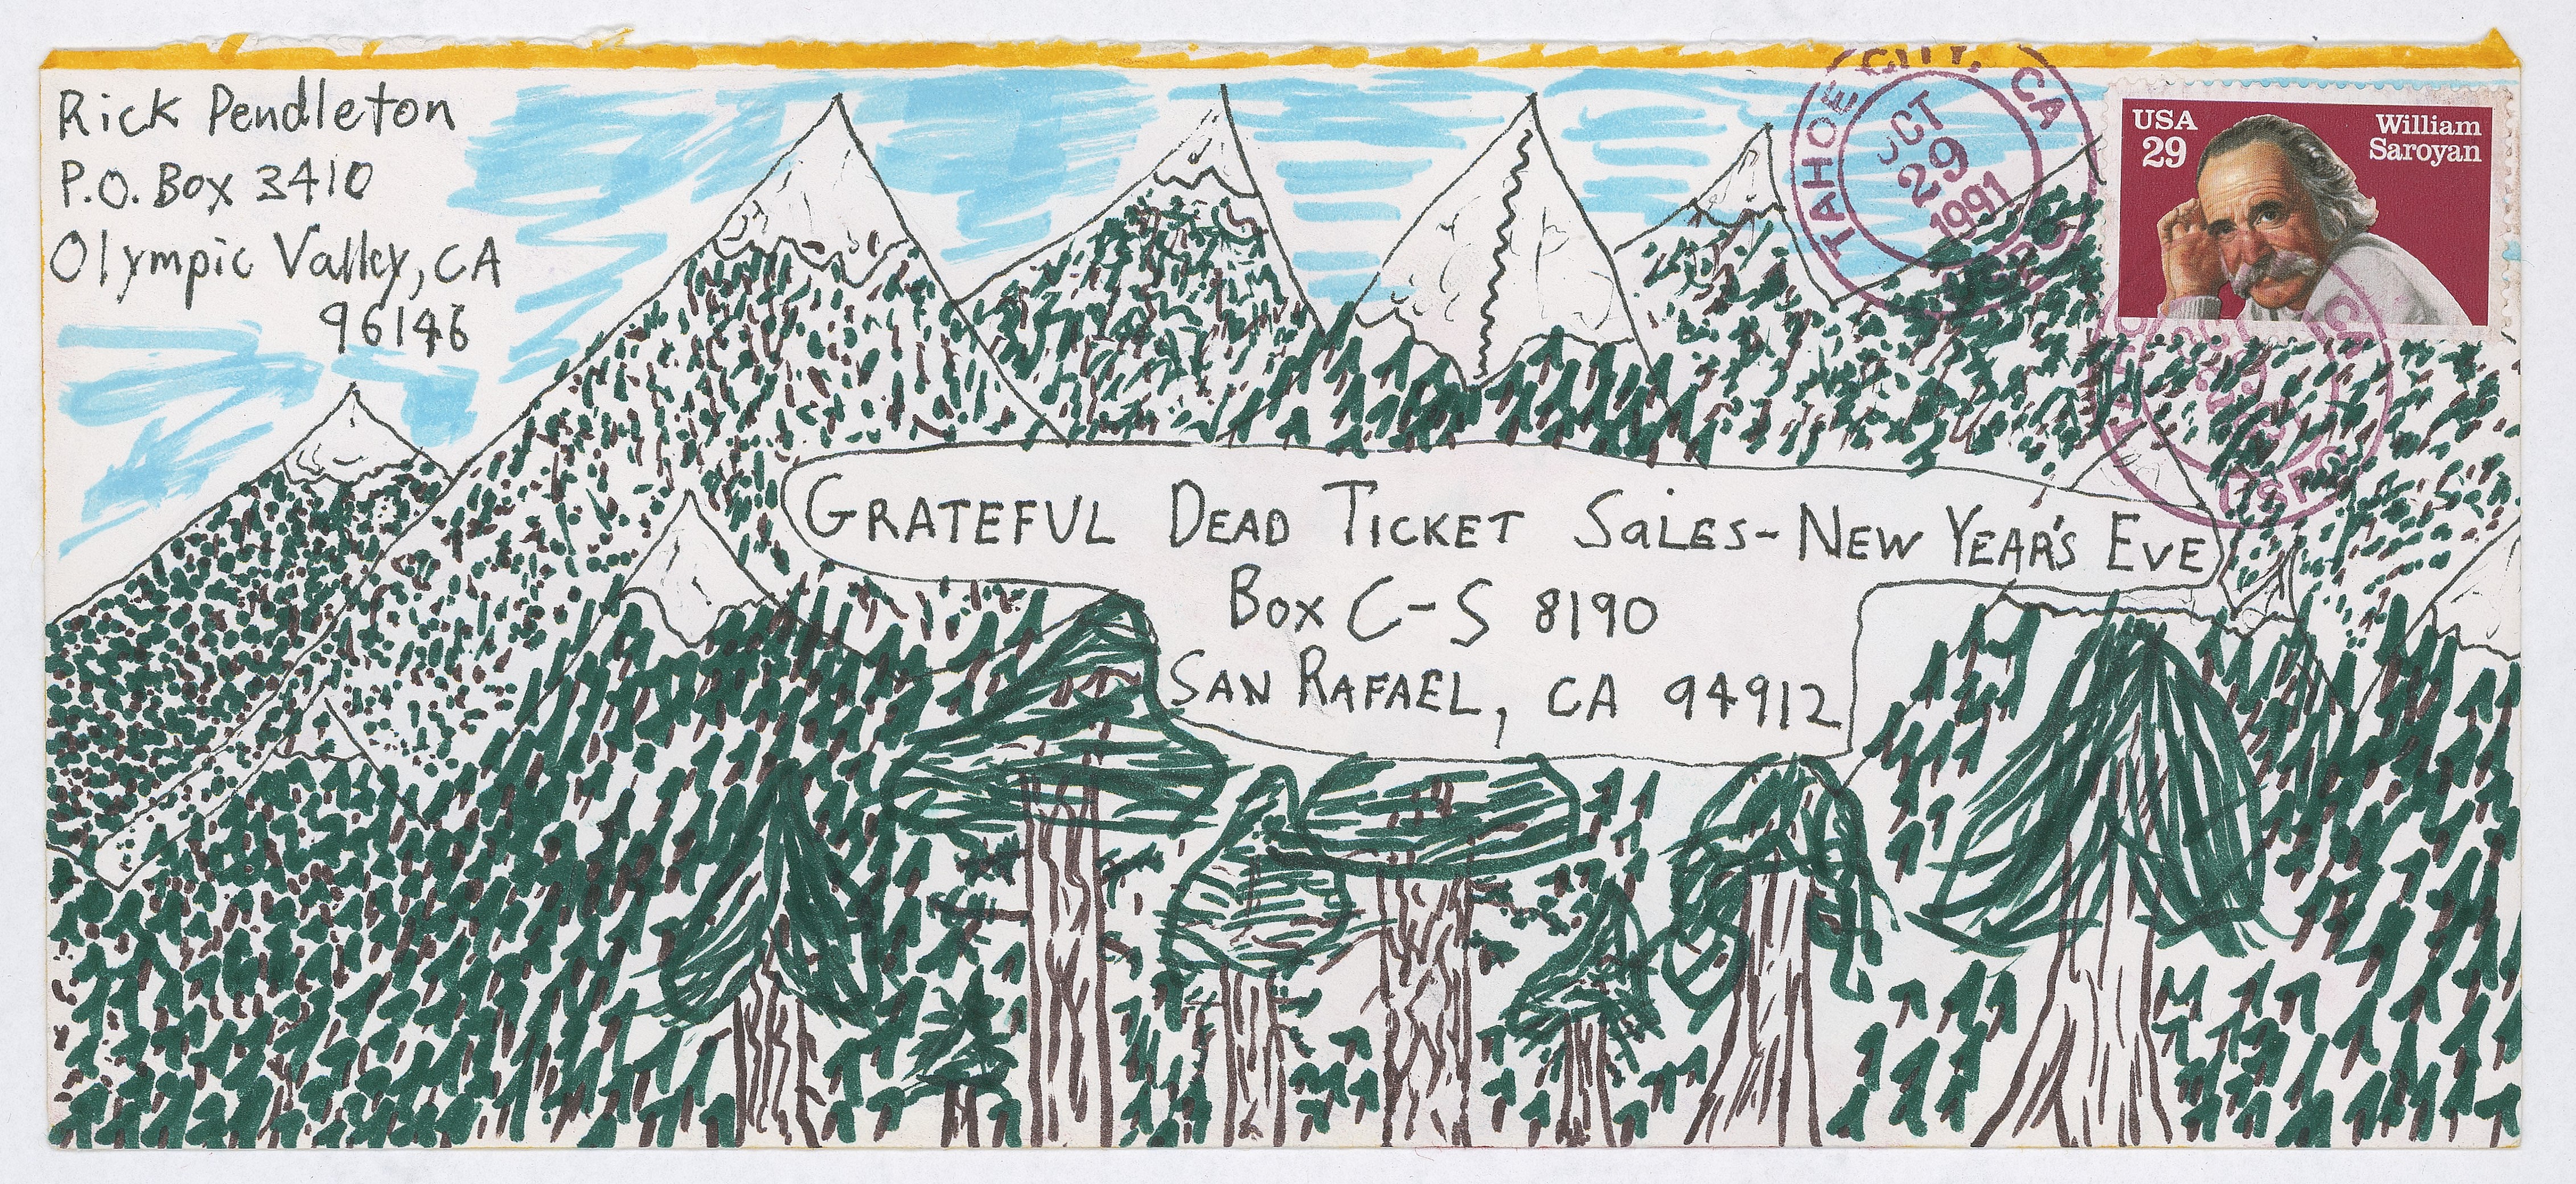 Rick Pendleton
P.O. Box 3410
Olympic Valley, CA
96146
TAHOE CITY, CA
OCT
29
1991
USPS
USA
29
William
Saroyan
GRATEFUL DEAD TICKET SaLES - NEW YEAR'S EVE
Box C-S 8190
SAN RAFAEL, CA 94912
CA
OCT
29
USPS